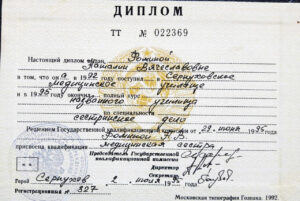 ДИПЛОМ
ТТ № 022369
Настоящий диплом выдан Фоминой
Наталии Вячеславовне
в том, что он а в 1992 году поступил а Серпуховское
медицинское училище
и в 1995 году окончил а полный
названного училища
по специальности
сестринское дело
Решением Государственной квалификационной комиссии от 29 июня 1995 г.
Фоминой Н.В.
присвоена квалификация медицинская сестра
Председатель Государственной
квалификационной комиссии
Директор
Секретарь
Город Серпухов 2 июля 1995 года
Регистрационный № 327
Московская типография Гознака. 1992.